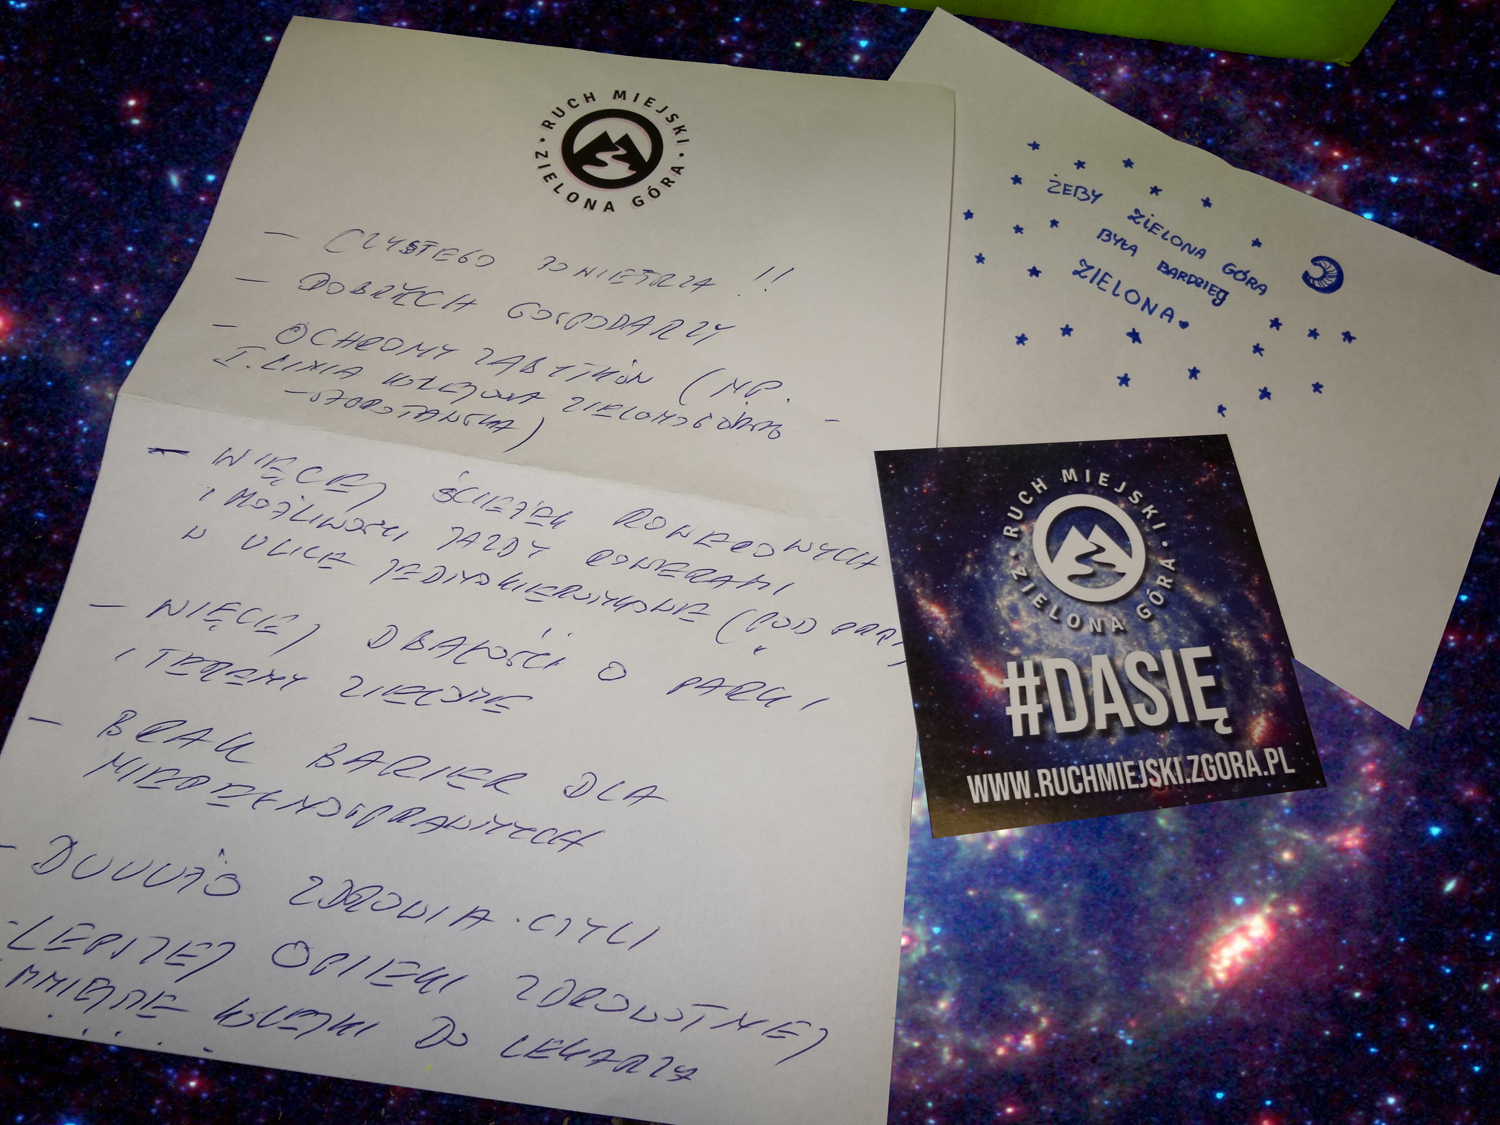 RUCH MIEJSKI
ZIELONA GÓRA
– CZYSTEGO POWIETRZA !!
– DOBRYCH GOSPODARZY
– OCHRONY ZABYTKÓW (NP.
I. LINIA KOLEJOWA ZIELONOGÓRSKO –
– SZPROTAWSKA)
– WIĘCEJ ŚCIEŻEK ROWEROWYCH
I MOŻLIWOŚCI JAZDY ROWERAMI
W ULICE JEDNOKIERUNKOWE (POD PRĄD)
– WIĘCEJ DBAŁOŚCI O PARKI
I TERENY ZIELONE
– BRAK BARIER DLA
NIEPEŁNOSPRAWNYCH
– DUUUŻO ZDROWIA CZYLI
– LEPSZEJ OPIEKI ZDROWOTNEJ
KOLEJKI DO LEKARZY
. . . .
ŻEBY ZIELONA GÓRA
BYŁA BARDZIEJ
ZIELONA
RUCH MIEJSKI
ZIELONA GÓRA
#DASIĘ
WWW.RUCHMIEJSKI.ZGORA.PL